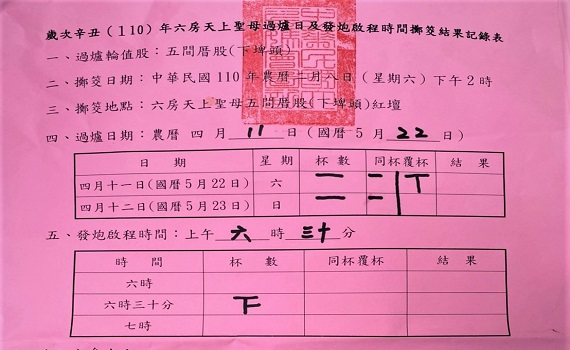 歲次辛丑(110)年六房天上聖母過爐日及發炮啟程時間擲筊結果記錄表
一、過爐輪值股：五間厝股(下埤頭)
二、擲筊日期：中華民國110年農曆二月八日(星期六)下午2時
三、擲筊地點：六房天上聖母五間厝股(下埤頭)紅壇
四、過爐日期：農曆 四 月 11 日(國曆 5 月 22 日)
日 期 星 期 杯 數 同杯覆杯 結 果
四月十一日(國曆5月22日) 六 一 一 丅
四月十二日(國曆5月23日) 日 一 一
五、發炮啟程時間：上午 六 時 三十 分
時 間 杯 數 同杯覆杯 結 果
六時
六時三十分 下
七時